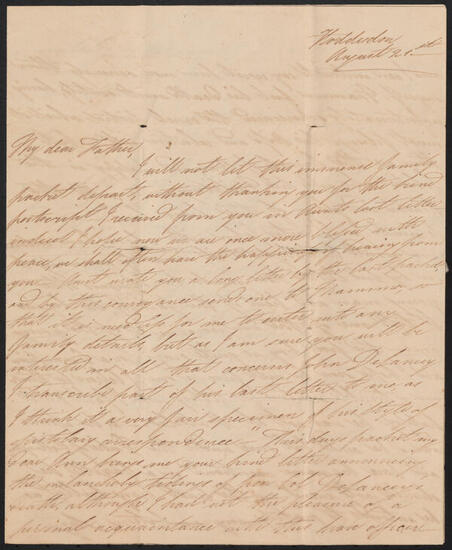 Hoddesdon
August 21st
My dear Father,
I will not let this immense family
packet depart, without thanking you for the kind
postscript I received from you in Aunts last letter
indeed I hope now we are once more blessed with
peace, we shall often have the happiness of hearing from
you. Aunt wrote you a long letter by the last packet,
and by this conveyance sends one to Gramma, so
that it is useless for me to enter into any
family details, but as I am sure you will be
interested in all that concerns John Delancey
I transcribe part of his last letter to me, as
I think it a very fair specimen of his style of
epistolary correspondence— "This days packet my
dear Ann brings me your kind letter announcing
the melancholy tidings of poor Col Delancey's
death, although I had not the pleasure of a
personal acquaintance with this brave officer